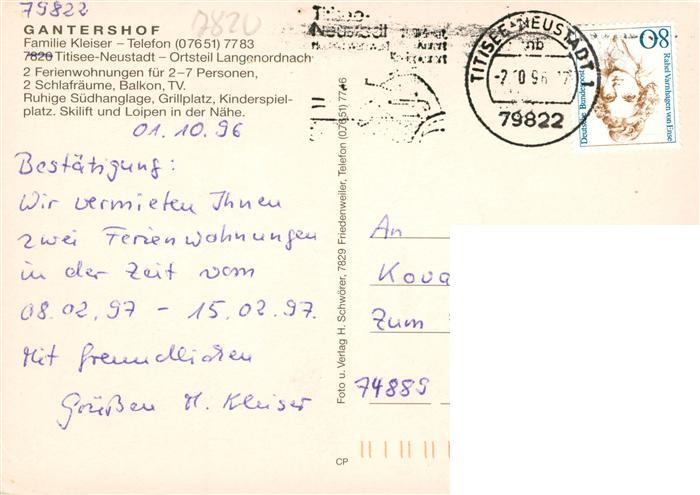 79822
7820
GANTERSHOF
Familie Kleiser – Telefon (07651) 7783
7820 Titisee-Neustadt – Ortsteil Langenordnach
2 Ferienwohnungen für 2–7 Personen,
2 Schlafräume, Balkon, TV.
Ruhige Südhanglage, Grillplatz, Kinderspiel-
platz. Skilift und Loipen in der Nähe.
01.10.96
Bestätigung:
Wir vermieten Ihnen
zwei Ferienwohnungen
in der Zeit vom
08.02.97 – 15.02.97.
Mit freundlichen
Grüßen M. Kleiser
Foto u. Verlag H. Schwörer, 7829 Friedenweiler, Telefon (07651) 7716
CP
Titisee-
Neustadt
TITISEE-NEUSTADT 1
nb
-2.10.96
79822
80
Rahel Varnhagen von Ense
Deutsche Bundespost
An
Kova
Zum
74889